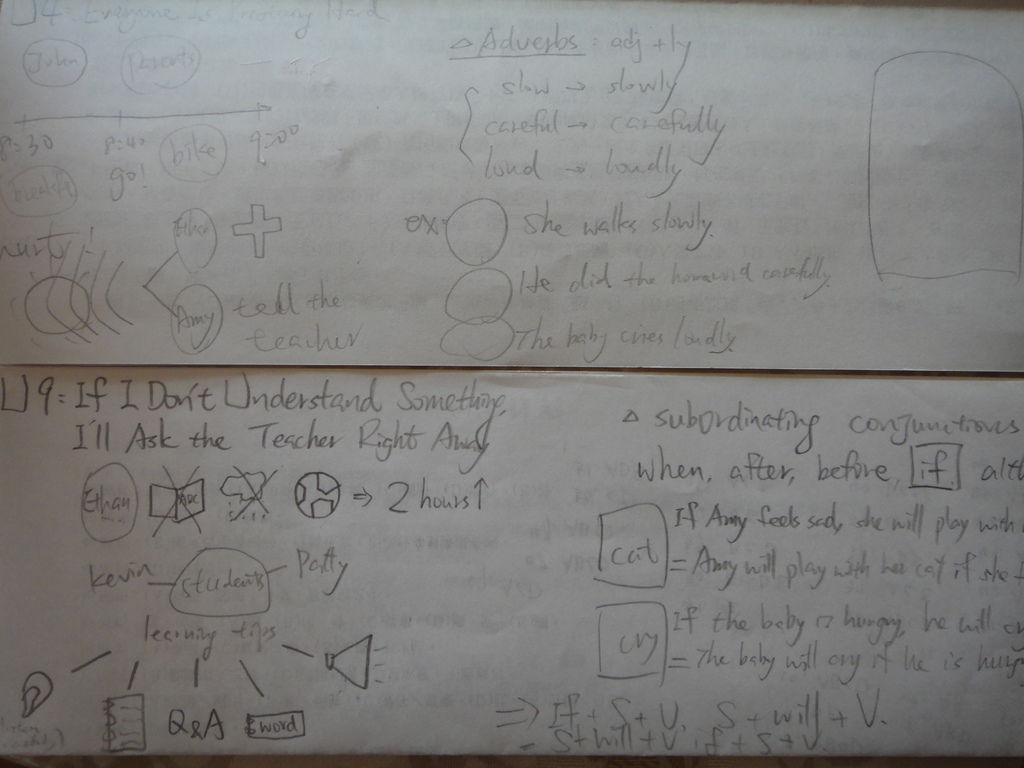 U4: Everyone Is Hard
Julia
Parents
8:30
8:40
9:00
go!
bike
breakfast
Ethan
Amy
tell the
teacher
△ Adverbs : adj + ly
slow → slowly
careful → carefully
loud → loudly
ex.
She walks slowly.
He did the carefully.
The baby cries loudly.
U9: If I Don't Understand Something,
I'll Ask the Teacher Right Away
Ethan
ABC
⇒ 2 hours ↑
Kevin
students
Patty
learning tips
Q&A
word
△ subordinating conjunctions
when, after, before, if, alth
cat
If Amy feels sad, she will play with
= Amy will play with her cat if she f
cry
If the baby is hungry, he will cry
= The baby will cry if he is hung
⇒ If + S + V, S + will + V.
= S + will + V, if + S + V.